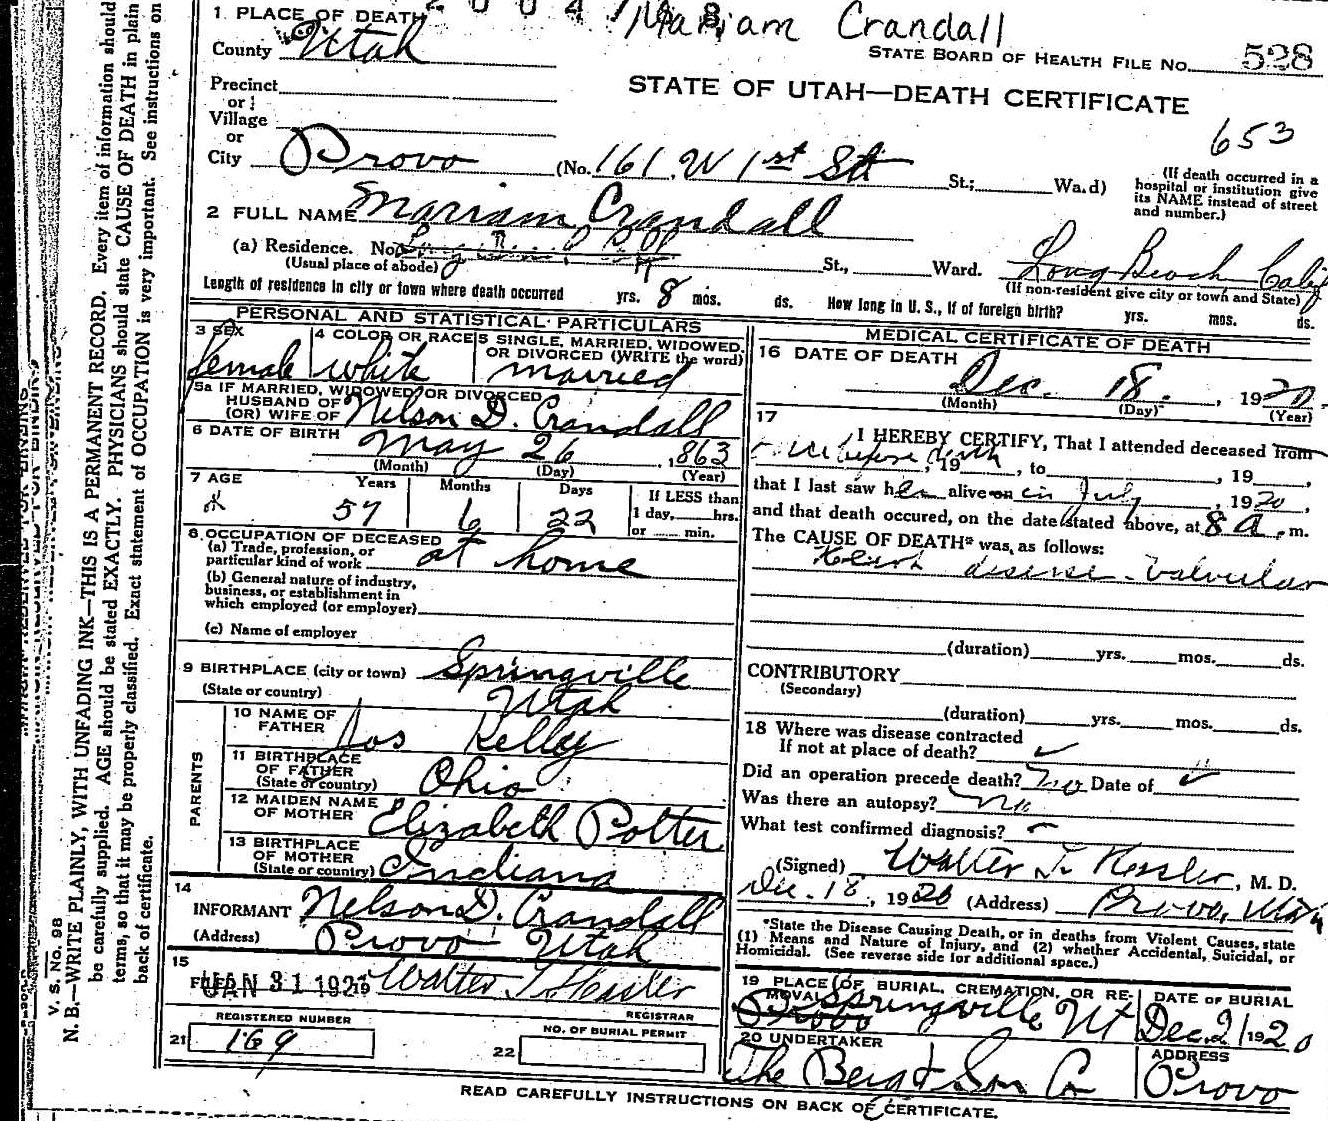 Mariam Crandall
1 PLACE OF DEATH
County Utah
STATE BOARD OF HEALTH FILE No. 528
STATE OF UTAH—DEATH CERTIFICATE
653
Precinct
or
Village
or
City Provo (No. 161 W 1st St St.; Ward)
(If death occurred in a hospital or institution give its NAME instead of street and number.)
2 FULL NAME Mariam Crandall
(a) Residence. No. St., Ward. Long Beach Calif
(Usual place of abode) (If non-resident give city or town and State)
Length of residence in city or town where death occurred yrs. 8 mos. ds. How long in U. S., if of foreign birth? yrs. mos. ds.
PERSONAL AND STATISTICAL PARTICULARS
3 SEX female
4 COLOR OR RACE white
5 SINGLE, MARRIED, WIDOWED, OR DIVORCED (WRITE the word) married
5a IF MARRIED, WIDOWED, OR DIVORCED
HUSBAND OF
(OR) WIFE OF Nelson D. Crandall
6 DATE OF BIRTH May 26, 1863
(Month) (Day) (Year)
7 AGE Years Months Days If LESS than
57 6 22 1 day, hrs.
or min.
8 OCCUPATION OF DECEASED
(a) Trade, profession, or
particular kind of work at home
(b) General nature of industry,
business, or establishment in
which employed (or employer)
(c) Name of employer
9 BIRTHPLACE (city or town) Springville
(State or country) Utah
PARENTS
10 NAME OF
FATHER Jos Kelley
11 BIRTHPLACE
OF FATHER
(State or country) Ohio
12 MAIDEN NAME
OF MOTHER Elizabeth Potter
13 BIRTHPLACE
OF MOTHER
(State or country) Indiana
14
INFORMANT Nelson D. Crandall
(Address) Provo Utah
15
FILED JAN 31 1921 Walter T Hasler
REGISTRAR
REGISTERED NUMBER
21 169
NO. OF BURIAL PERMIT
22
MEDICAL CERTIFICATE OF DEATH
16 DATE OF DEATH
Dec. 18, 1920
(Month) (Day) (Year)
17
I HEREBY CERTIFY, That I attended deceased from
before death, 19, to, 19,
that I last saw her alive on in July, 1920,
and that death occured, on the date stated above, at 8 a. m.
The CAUSE OF DEATH* was, as follows:
Heart disease - Valvular
(duration) yrs. mos. ds.
CONTRIBUTORY
(Secondary)
(duration) yrs. mos. ds.
18 Where was disease contracted
If not at place of death? ✓
Did an operation precede death? No Date of ✓
Was there an autopsy? No
What test confirmed diagnosis?
(Signed) Walter T. Hasler, M. D.
Dec. 18, 1920 (Address) Provo, Utah
*State the Disease Causing Death, or in deaths from Violent Causes, state
(1) Means and Nature of Injury, and (2) whether Accidental, Suicidal, or
Homicidal. (See reverse side for additional space.)
19 PLACE OF BURIAL, CREMATION, OR RE-
MOVAL Springville Ut
Provo
DATE OF BURIAL
Dec. 21 1920
20 UNDERTAKER
The Berg & Son Co
ADDRESS
Provo
READ CAREFULLY INSTRUCTIONS ON BACK OF CERTIFICATE.
V. S. No. 98
N. B.—WRITE PLAINLY, WITH UNFADING INK—THIS IS A PERMANENT RECORD. Every item of information should
be carefully supplied. AGE should be stated EXACTLY. PHYSICIANS should state CAUSE OF DEATH in plain
terms, so that it may be properly classified. Exact statement of OCCUPATION is very important. See instructions on
back of certificate.